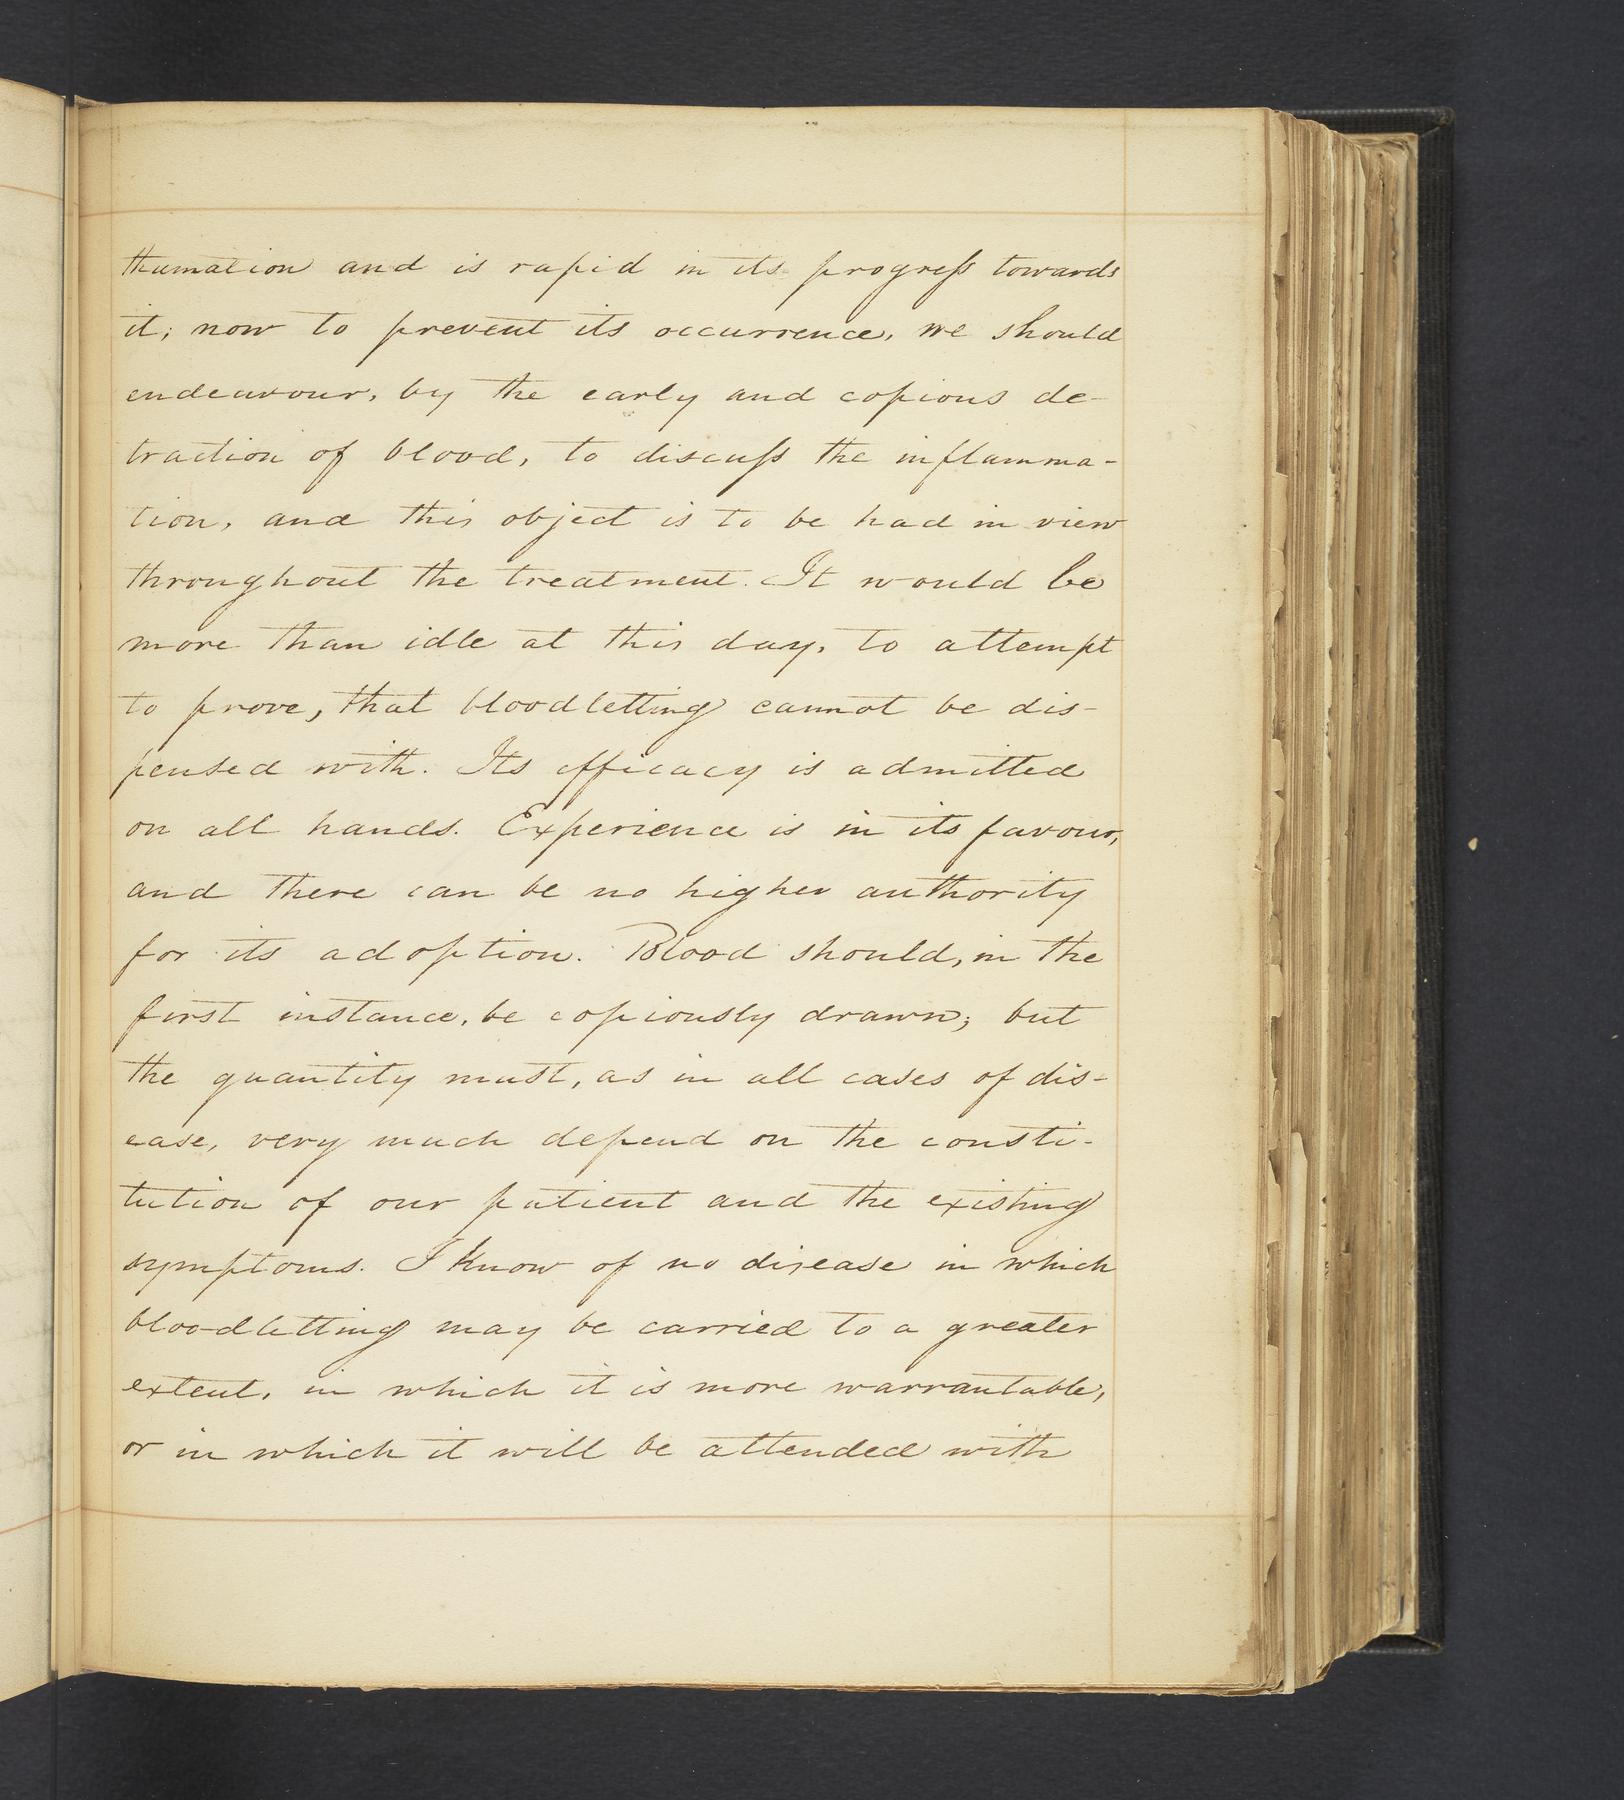 thumation and is rapid in its progress towards
it; now to prevent its occurrence, we should
endeavour, by the early and copious de-
traction of blood, to discuss the inflamma-
tion, and this object is to be had in view
throughout the treatment. It would be
more than idle at this day, to attempt
to prove, that bloodletting cannot be dis-
pensed with. Its efficacy is admitted
on all hands. Experience is in its favour,
and there can be no higher authority
for its adoption. Blood should, in the
first instance, be copiously drawn; but
the quantity must, as in all cases of dis-
ease, very much depend on the consti-
tution of our patient and the existing
symptoms. I know of no disease in which
bloodletting may be carried to a greater
extent, in which it is more warrantable,
or in which it will be attended with